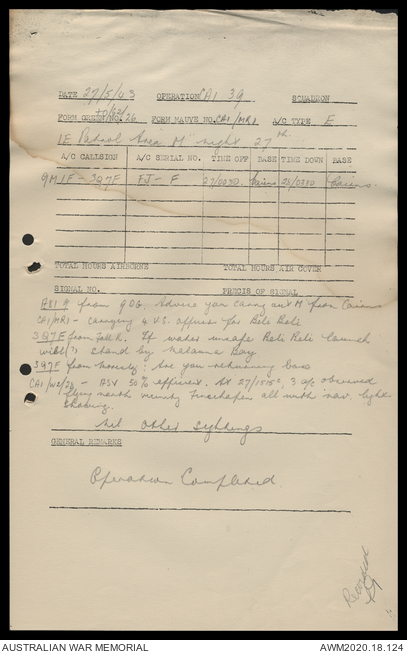 DATE 27/5/43 OPERATION CAI 39 SQUADRON
FORM GREEN NO. 26 FORM MAUVE NO. CAI/MR1 A/C TYPE E
1E Patrol Area M night 27th
A/C CALLSIGN A/C SERIAL NO. TIME OFF BASE TIME DOWN BASE
9M1F - 3Q7F FJ - F 27/0030 Cairns Cairns
TOTAL HOURS AIRBORNE TOTAL HOURS AIR COVER
SIGNAL NO. PRECIS OF SIGNAL
A81 from 9OG. Advise you carry out M from Cairns
CAI/MR1 - carrying 4 U.S. officers for Beli Beli
3Q7F from. If water unsafe Beli Beli launch
will(?) stand by Bay
3Q7F from: Are you returning base
- ASV 50% efficient. At 27/1515Z, 3 a/c observed
flying north vicinity all with nav. lights
showing.
Nil other sightings
GENERAL REMARKS
Operation Completed.
Recorded
AUSTRALIAN WAR MEMORIAL AWM2020.18.124